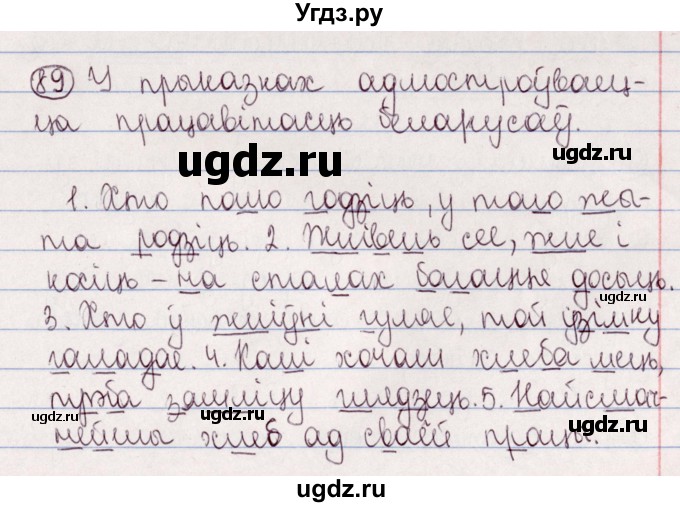 Угдз.ру
89 У прыказках адлюстроўваец-
ца працавітасць беларусаў.
ugdz.ru
ugdz.ru
1. Хто полю годзіць, у таго жы-
та родзіць. 2. Жнівень сее, жне і
косіць – на сталах багацце досыць.
ugdz.ru
3. Хто ў жніўні гуляе, той узімку
галадае. 4. Калі хочаш хлеба мець,
трэба зямліцу глядзець. 5. Найсмач-
ugdz.ru
ugdz.ru
нейшы хлеб ад сваёй працы.
ugdz.ru